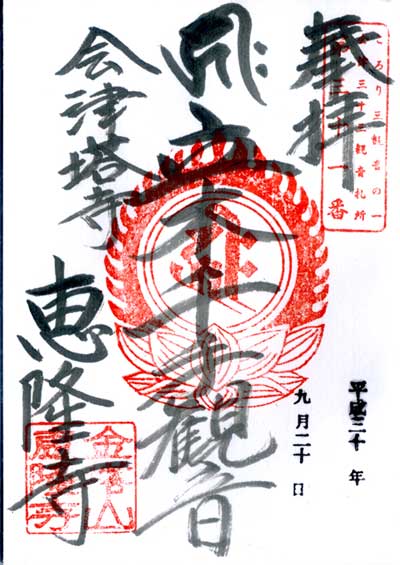 奉拝
ころり三観音の一
会津三十三観音札所
第三十一番
平成三十年
九月二十日
立木千手観音
会津塔寺
恵隆寺
金塔山
恵隆寺